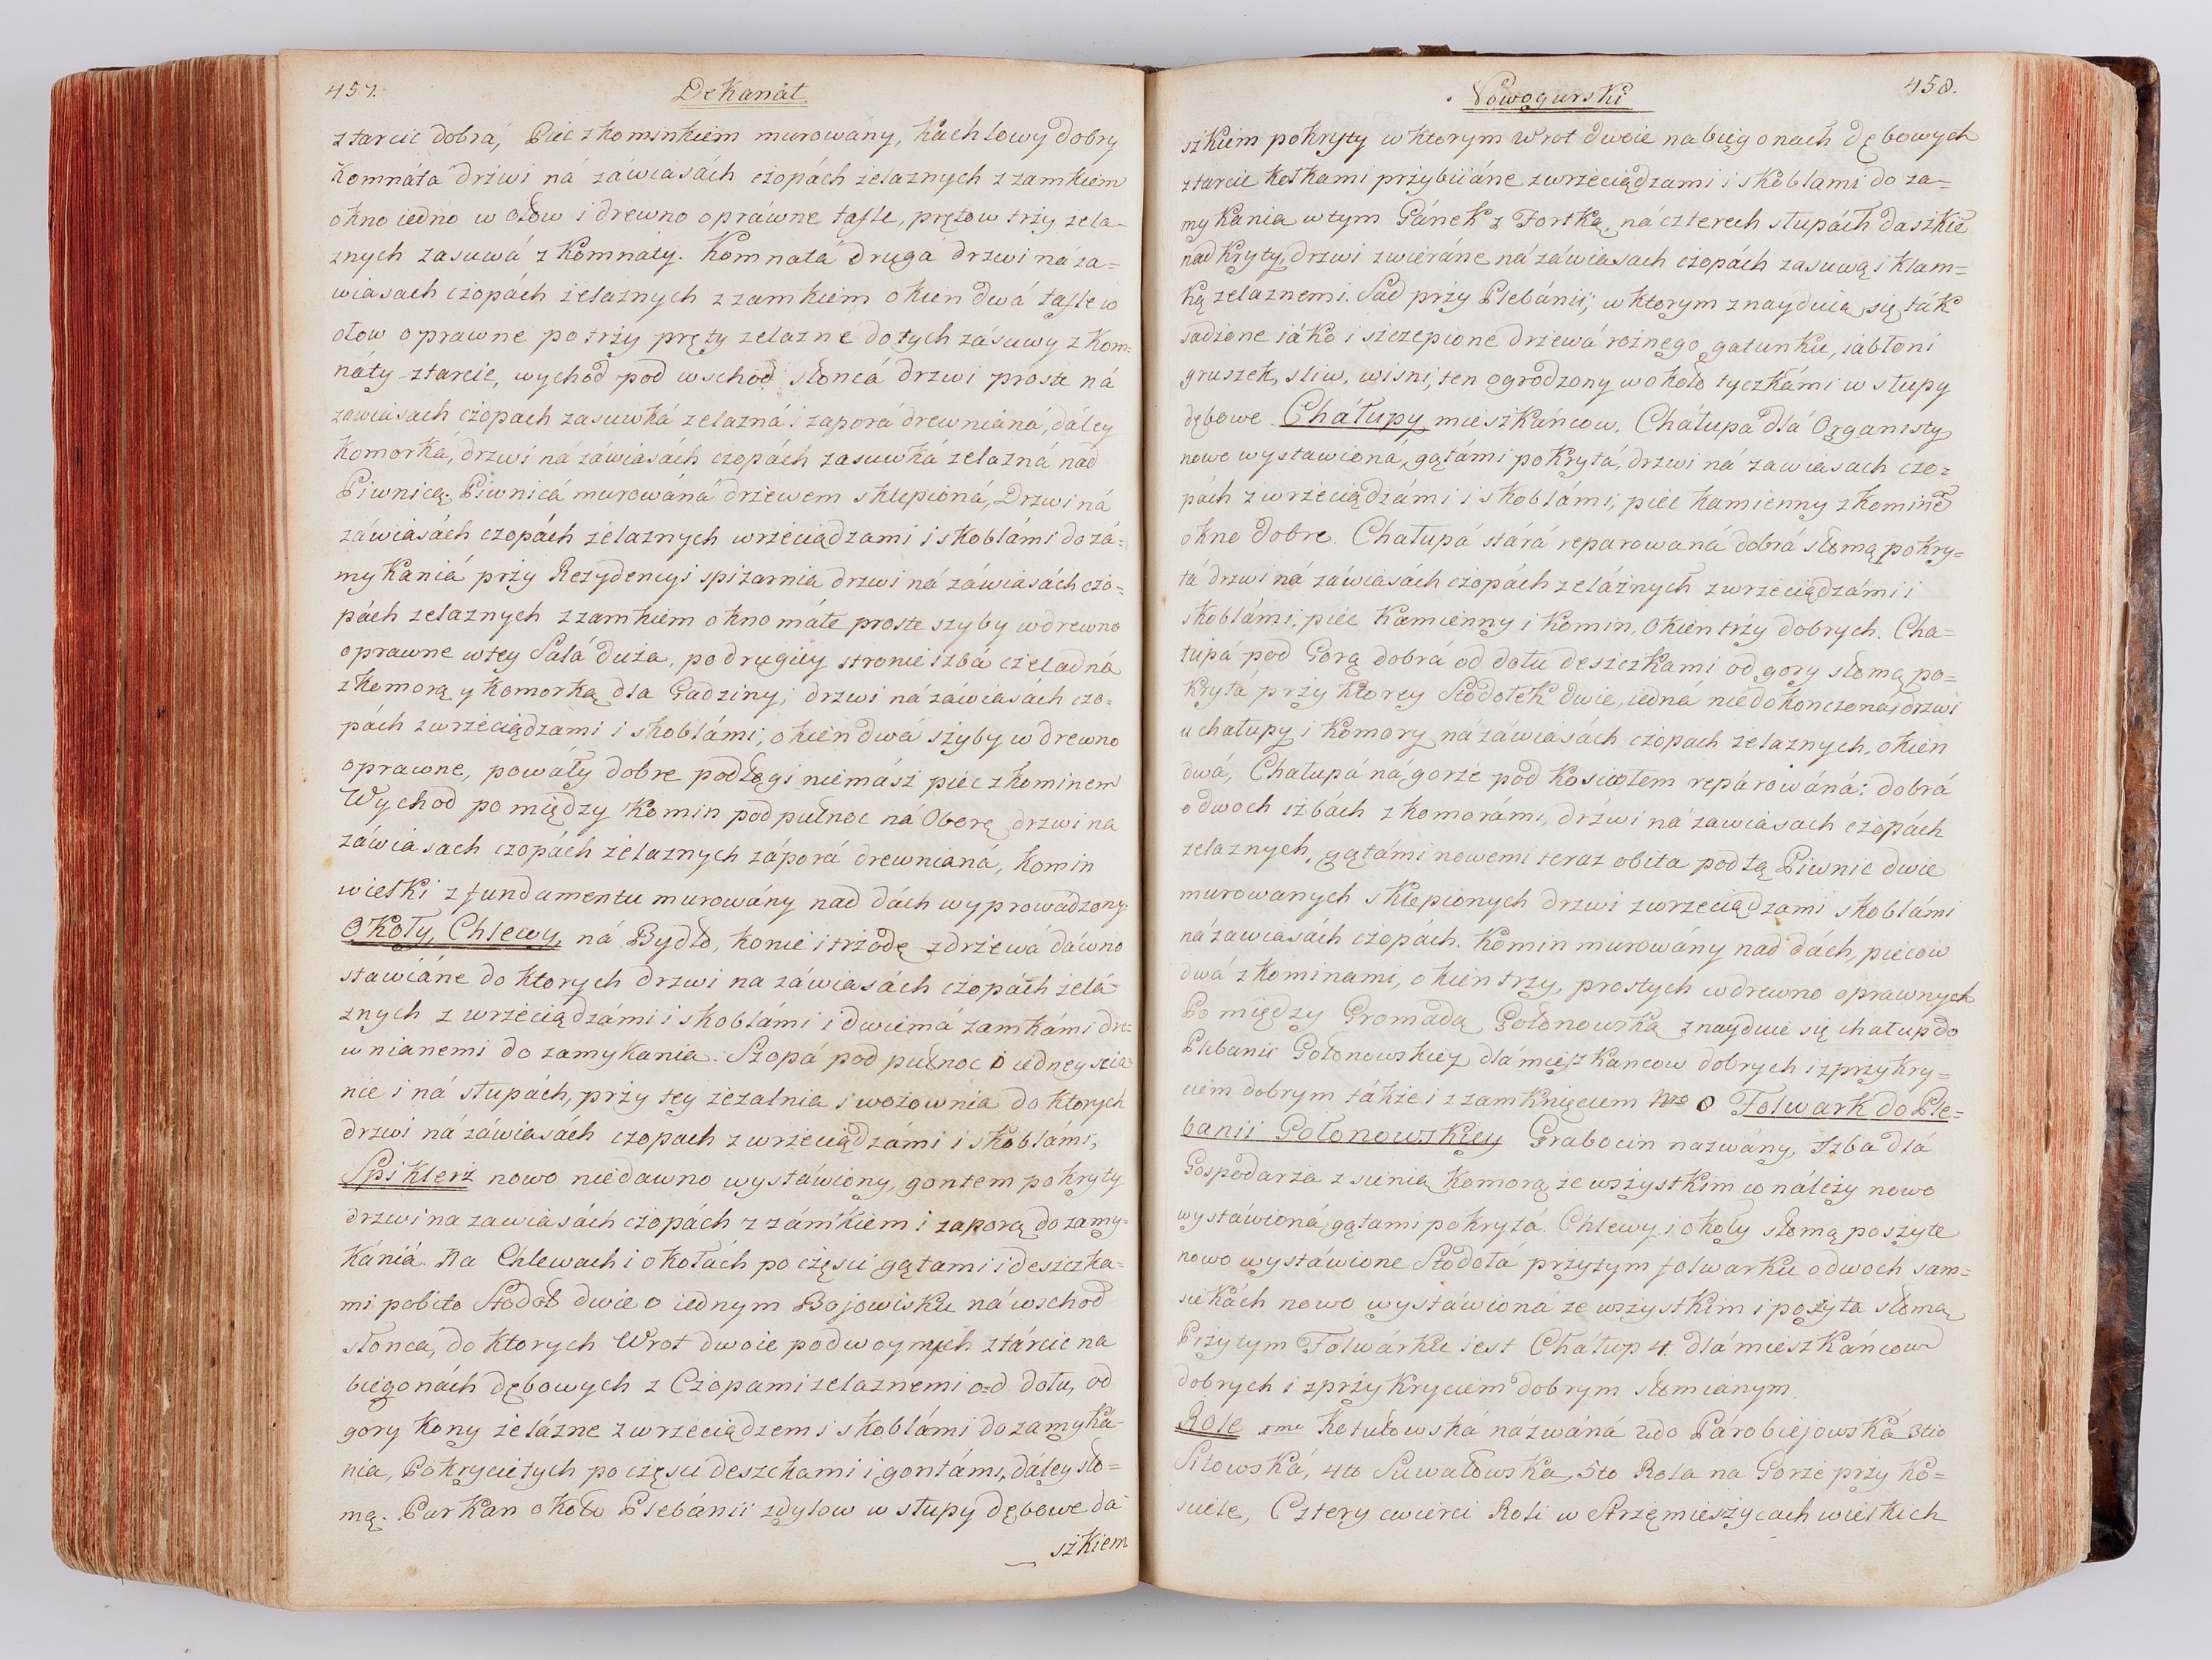 457.
Dekanat
ztarcic dobrá, Piec zkominkiem murowany, kachlowy dobry
Komnáta drzwi ná záwiasách czopách zelaznych z zamkiem
okno iedno w ołow i drewno opráwne tafle, prętow trzy zela=
znych zasuwá z Komnaty. Komnatá druga drzwi ná za=
wiasach czopách zelaznych z zamkiem okien dwá tafle w
ołow oprawne po trzy pręty zelazne do tych zásuwy z Kom=
náty ztarcic, wychod pod wschod słoncá drzwi proste ná
zawiasach czopach zasuwká zelazná i zaporá drewnianá, dáley
Komorká, drzwi ná záwiasách czopách zasuwká zelazná nad
Piwnicą. Piwnicá murowáná drzewem sklepioná, Drzwi ná
záwiasách czopách zelaznych wrzeciądzami i skoblámi do zá=
mykaniá przy Rezydencyi spizarnia drzwi ná záwiasách czo=
pách zelaznych z zamkiem okno máłe proste szyby w drewno
oprawne w tey Salá duza, po drugiey stronie izbá czeladná
z komorą y komorką dla Gadziny; drzwi na záwiasách czo=
pách z wrzeciądzami i skoblámi, okien dwá szyby w drewno
oprawne, powáły dobre podłogi niemász piec z kominem
Wychod po między Komin pod pułnoc ná Oborę drzwi na
záwiasach czopách zelaznych záporá drewnianá, komin
wielki z fundamentu murowány nad dách wyprowádzony
Okoły, Chlewy, ná Bydło, konie i trzodę z drzewá dáwno
stawiáne do ktorych drzwi na záwiasách czopách zelá=
znych z wrzeciądzámi i skoblámi i dwiemá zamkámi dre=
wnianemi do zamykania. Szopá pod pułnoc o iedney scia=
nie i ná słupách, przy tey zezalnia i wozownia do ktorych
drzwi ná záwiasach czopach z wrzeciądzámi i skoblámi,
Spiklerz nowo niedawno wystáwiony, gontem pokryty
drzwi na zawiasách czopách z zámkiem i zaporą do zamy=
kániá. Na Chlewach i okołách po częsci gątami i deszczka=
mi pobito Stodoł dwie o iednym Bojowisku ná wschod
słonca, do ktorych Wrot dwoie podwoynych ztárcic na
biegonách dębowych z Czopami zelaznemi o=d dołu, od
gory Kony zelázne z wrzeciądzem i skoblámi do zamyká=
nia, Pokrycie tych po częsci deszckami i gontámi, dáley sło=
mą. Parkan około Plebánii zdylow w słupy dębowe da
szkiem
Nowogurski
458.
szkiem pokryty w ktorym Wrot dwoie na biegonach dębowych
ztarcic kołkami przybiiáne z wrzeciądzami i skoblami do za=
mykania w tym Gánek z Fortką, ná czterech słupách daszkie
nad kryty, drzwi zwieráne ná záwiasach czopách zasuwą i klam=
ką zelaznemi. Sad przy Plebánii, w ktorym znayduią się ták
sadzone iáko i szczepione drzewá roznego gatunku, iabłoni
gruszek, sliw, wisni, ten ogrodzony w około tyczkámi w słupy
dębowe. Chałupy mieszkáncow. Chałupa dlá Organisty
nowo wystawiona, gątámi pokrytá, drzwi ná zawiasach czo=
pách z wrzeciądzámi i skoblámi, piec kamienny z kominē
okno dobre. Chałupá stárá reparowaná dobrá słomą pokry=
tá drzwi ná záwiasách czopách zeláznych z wrzeciądzámi i
skoblámi, piec Kamienny i Komin, Okien trzy dobrych. Cha=
łupá pod Gorą dobrá od dołu deszczkami od gory słomą po=
krytá przy ktorey Stodołek dwie, iedná niedokonczona, drzwi
u chałupy i Komory ná záwiasách czopach zelaznych, okien
dwá, Chałupá ná gorze pod Kosiołem repárowáná: dobrá
o dwoch izbách z komorámi, drzwi ná zawiasach czopách
zelaznych, gątámi nowemi teraz obita pod tą Piwnic dwie
murowanych sklepionych drzwi z wrzeciądzami skoblámi
ná zawiasách czopách. Komin murowány nad dách, piecow
dwá z kominami, okien trzy, prostych w drewno oprawnych
Po między Gromadą Gołonowską znayduie się chałup do
Plebanii Gołonowskiey dlá mieszkancow dobrych i zprzykry=
ciem dobrym tákze i z zamknięciem Nro 0 Folwark do Ple=
banii Gołonowskiey Grabocin nazwány, Izba dlá
Gospodarza z sienią Komorą ze wszystkim co nálezy nowo
wystáwioná, gątami pokrytá. Chlewy i okoły słomą poszyte
nowo wystáwione Stodołá przytym folwarku o dwoch sam=
siekách nowo wystáwioná ze wszystkim i poszyta słomą
Przytym Folwárku iest Chałup 4. dlá mieszkáncow
dobrych i zprzykryciem dobrym słomianym.
Role 1mo Kotułowská názwáná 2do Párobiejowská 3tio
Siłowská, 4to Suwałowska, 5to Rola na Gorze przy Ko=
sciele, Cztery cwierci Roli w Strzęmieszycach wielkich